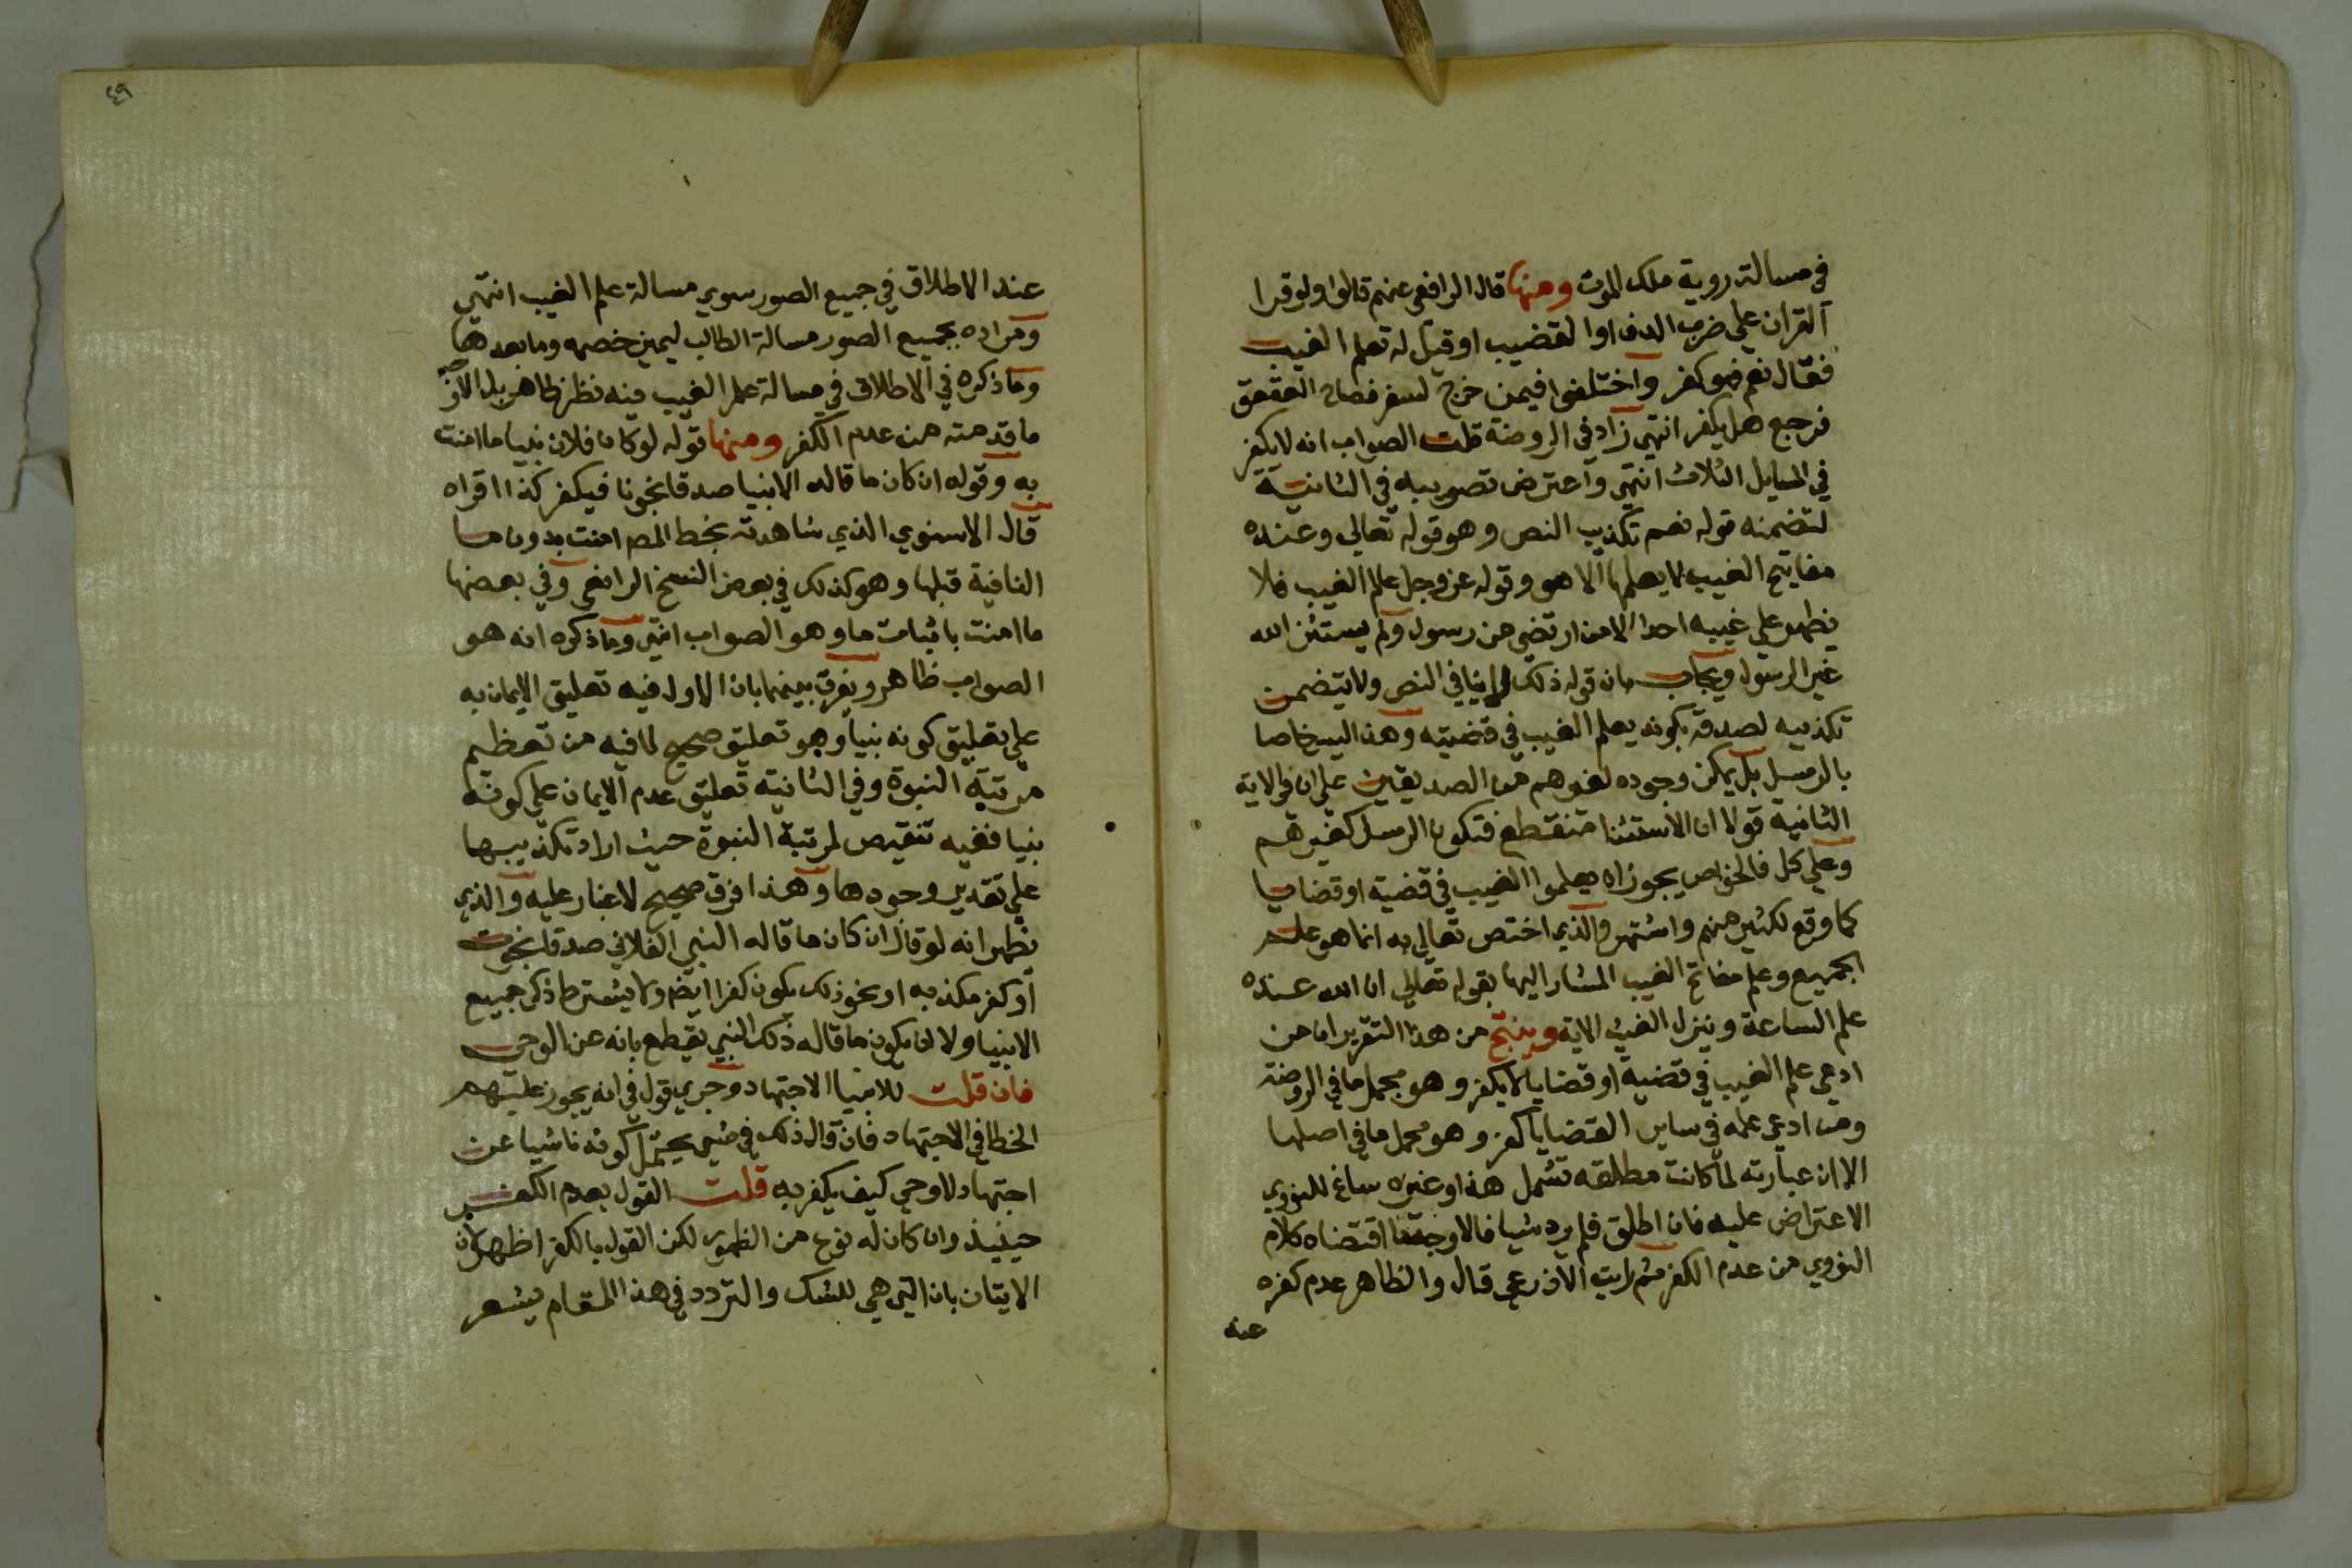 في مسالة روية ملك الموت ومنها قال الرافعي عنهم قالوا ولو قرا
القران علي ضرب الدف او القضيب او قيل له تعلم الغيب
فقال نعم فهو كفر واختلفوا فيمن خرج لسفر فصاح العقعق
فرجع هل يكفر انتهي زاد في الروضة قلت الصواب انه لا يكفر
في المسايل الثلاث انتهي واعترض تصويبه في الثانية
لتضمنه قوله نعم تكذيب النص وهو قوله تعالي وعنده
مفاتيح الغيب لا يعلمها الا هو وقوله عز وجل علم الغيب فلا
يظهر علي غيبه احدا الا من ارتضي من رسول ولم يستثن الله
غير الرسول ويجاب بان قوله ذلك لا ينافي النص ولا يتضمن
تكذيبه لصدقه بكونه يعلم الغيب في قضيته وهذا ليس خاصا
بالرسل بل يمكن وجوده لغيرهم من الصديقين علي ان في الاية
الثانية قولا ان الاستثنا منقطع فتكون الرسل كغيرهم
وعلي كل فالخواص يجوز ان يعلموا الغيب في قضية او قضايا
كما وقع لكثير منهم واشتهر والذي اختص تعالي به انما هو علم
الجميع وعلم مفاتح الغيب المشار اليها بقوله تعالي ان الله عنده
علم الساعة وينزل الغيث الاية وينتج من هذا التقرير ان من
ادعي علم الغيب في قضية او قضايا لا يكفر وهو محمل ما في الروضة
ومن ادعي علمه في ساير القضايا كفر وهو محمل ما في اصلها
الا ان عبارته لما كانت مطلقه تشمل هذا وغيره ساغ للنووي
الاعتراض عليه فان اطلق فلم يرد شيا فالاوجه ما اقتضاه كلام
النووي من عدم الكفر ثم رايت الاذرعي قال والظاهر عدم كفره
عنه
٤٩
عند الاطلاق في جميع الصور سوي مسالة علم الغيب انتهي
ومراده بجميع الصور مسالة الطالب ليمين خصمه وما بعدها
وما ذكره في الاطلاق في مسالة علم الغيب فيه نظر ظاهر بل الاوجه
ما قدمته من عدم الكفر ومنها قوله لو كان فلان نبيا ما امنت
به وقوله ان كان ما قاله الانبيا صدقا نجونا فيكفر كذا اقراه
قال الاسنوي الذي شاهدته بخط المص امنت بدون ما
النافية قبلها وهو كذلك في بعض النسخ الرافعي وفي بعضها
ما امنت باثبات ما وهو الصواب انتهي وما ذكره انه هو
الصواب ظاهر ويفرق بينهما بان الاول فيه تعليق الايمان به
علي تعليق كونه نبيا وهو تعليق صحيح لما فيه من تعظيم
مرتبة النبوة وفي الثانية تعليق عدم الايمان علي كونه
نبيا ففيه تنقيص لمرتبة النبوة حيث اراد تكذيبها
علي تقدير وجودها وهذا فرق صحيح لا غبار عليه والذي
يظهر انه لو قال ان كان ما قاله النبي الفلاني صدقا نجوت
او كفر مكذبه او نحو ذلك يكون كفرا ايضا ولا يشترط ذكر جميع
الانبيا ولا ان يكون ما قاله ذلك النبي يقطع بانه عن الوحي
فان قلت للانبيا الاجتهاد وجري قول في انه يجوز عليهم
الخطا في الاجتهاد فان قال ذلك في شي يحتمل كونه ناشيا عن
اجتهاد لا وحي كيف يكفر به قلت القول بعدم الكفر
حينيذ وان كان له نوع من الظهور لكن القول بالكفر اظهر لان
الاتيان بان التي هي للشك والتردد في هذا المقام يشعر